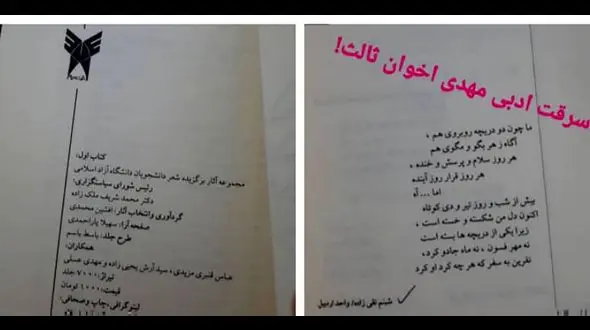 کتاب اول:
مجموعه آثار برگزیده شعر دانشجویان دانشگاه آزاد اسلامی
رئیس شورای سیاستگزاری:
دکتر محمد شریف ملک زاده
گردآوری وانتخاب آثار: افشین محمدی
صفحه آرا: سهیلا یاراحمدی
طرح جلد: باسط باسم
همکاران:
عباس قنبری مزیدی، سید آرش یحیی زاده و مهدی عسلی
تیراژ: ۷۰۰۰ جلد
قیمت: ۱۰۰۰ تومان
لیتوگرافی، چاپ وصحافی:
سرقت ادبی مهدی اخوان ثالث!
ما چون دو دریچه روبروی هم،
آگاه ز هر بگو و مگوی هم
هر روز سلام و پرسش و خنده،
هر روز قرار روز آینده
اما ... آه
بیش از شب و روز تیر و دی کوتاه
اکنون دل من شکسته و خسته است،
زیرا یکی از دریچه ها بسته است
نه مهر فسون، نه ماه جادو کرد،
نفرین به سفر که هر چه کرد او کرد
شبنم نقی زاده/ واحد اردبیل